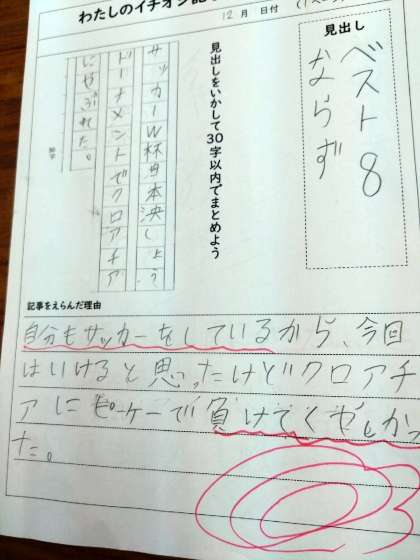 わたしのイチオシ記
12月 日付
見出し
ベスト8
ならず
見出しをいかして30字以内でまとめよう
サッカーW杯日本決しょう
トーナメントでクロアチア
にやぶれた。
記事をえらんだ理由
自分もサッカーをしているから、今回
はいけると思ったけどクロアチ
アにピーケーで負けてくやしかっ
た。